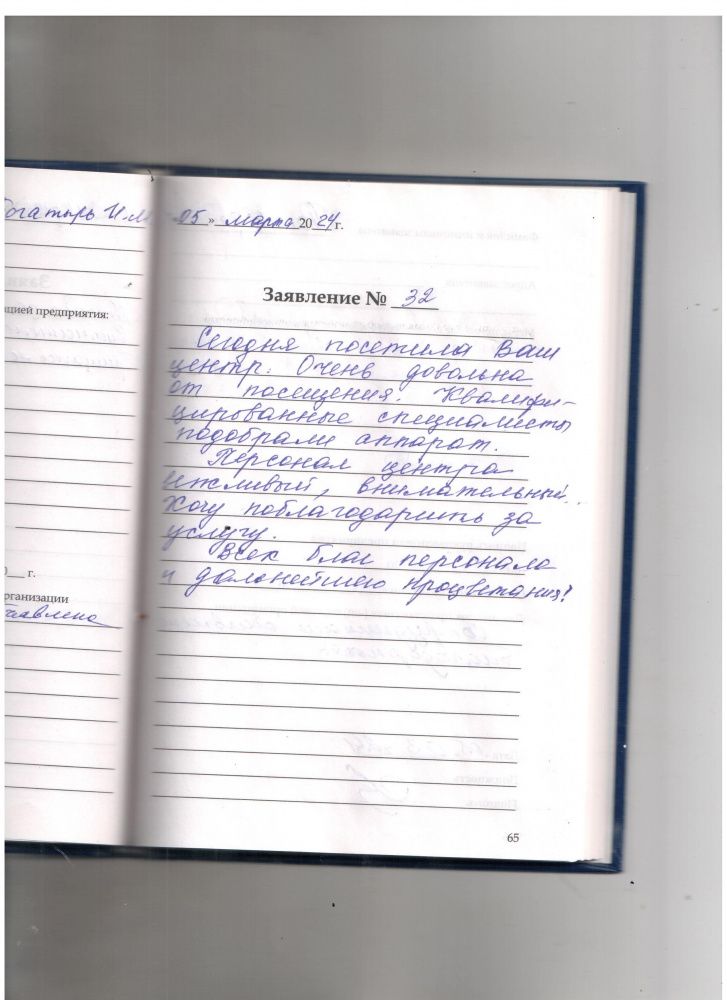 Богатырь И.М
ацией предприятия:
0___ г.
рганизации
05 » марта 2024 г.
Заявление № 32
Сегодня посетила Ваш
центр. Очень довольна
от посещения. Квалифи-
цированные специалисты
подобрали аппарат.
Персонал центра
вежливый, внимательный.
Хочу поблагодарить за
услугу.
Всех благ персоналу
и дальнейшего процветания!
65